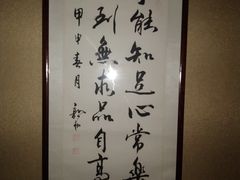 能知足心常樂
到無求品自高
甲申春月